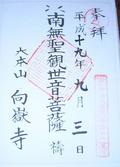 奉拝
平成十九年九月三日
南無聖観世音菩薩
大本山 向嶽寺